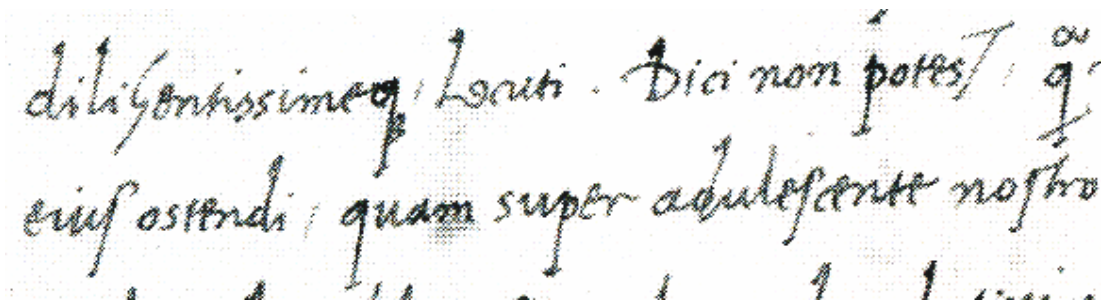 diligentissimeq, Locuti. Dici non potest, q
eius ostendi, quam super adulescente nostro